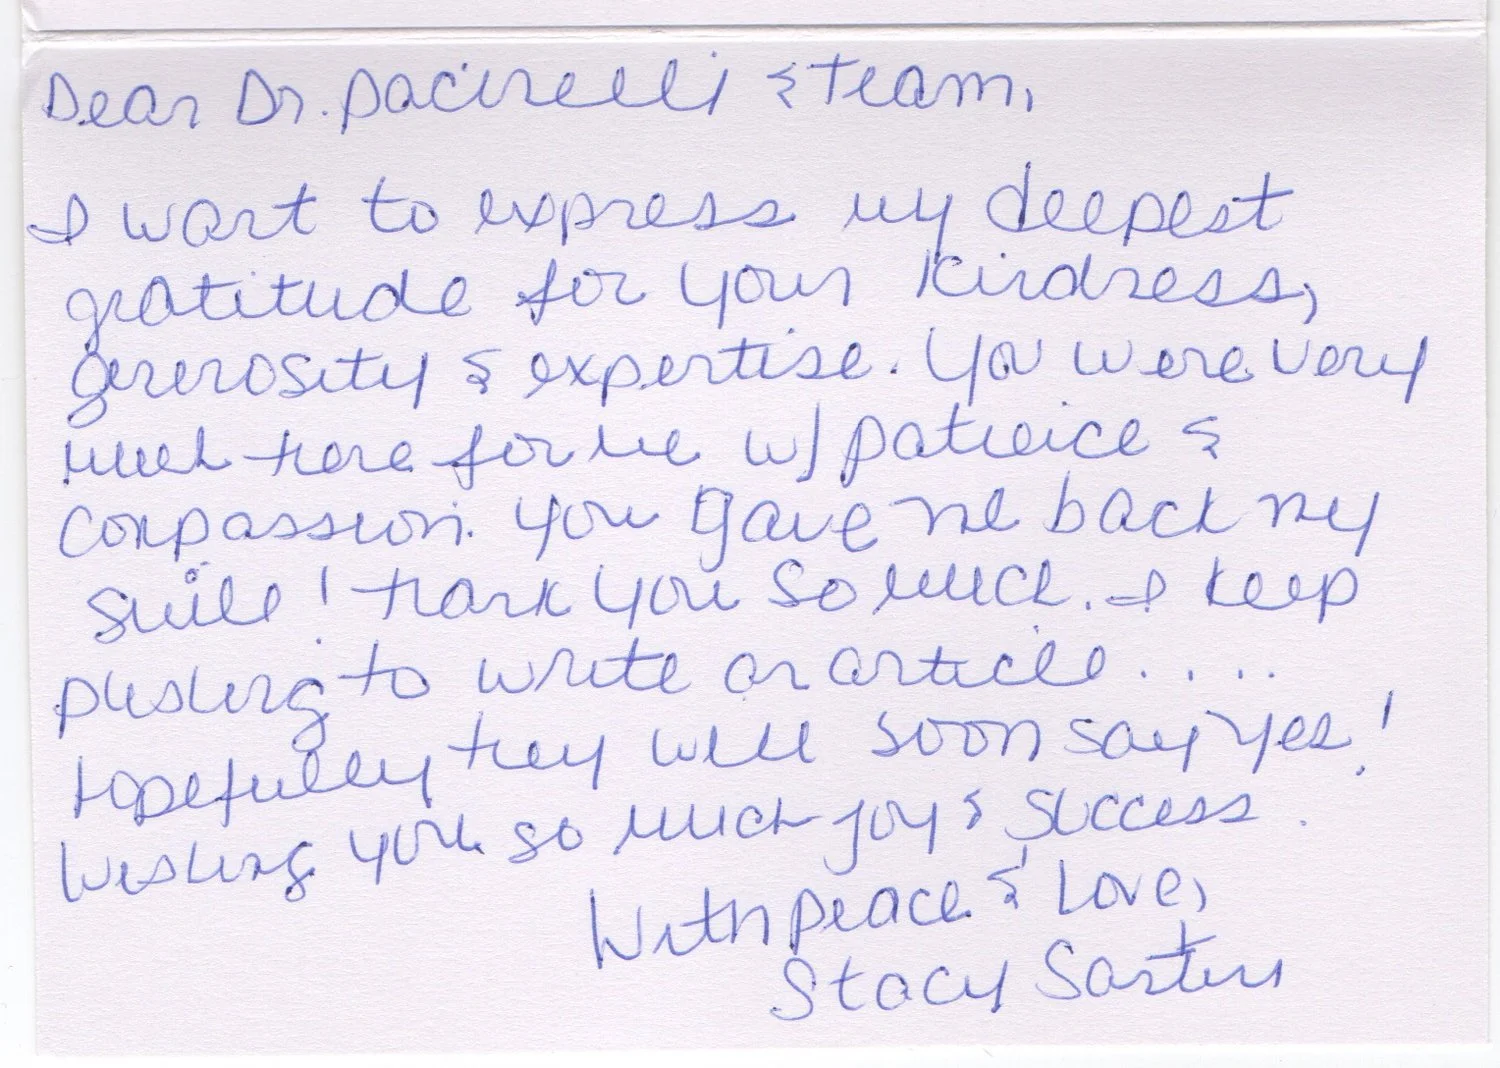 Dear Dr. Pacinelli & team,
I want to express my deepest
gratitude for your kindness,
generosity & expertise. You were very
much there for me w/ patience &
compassion. You gave me back my
smile! Thank you so much. I keep
pushing to write an article.....
Hopefully they will soon say yes!
Wishing you so much joy & success.
With peace & Love,
Stacy